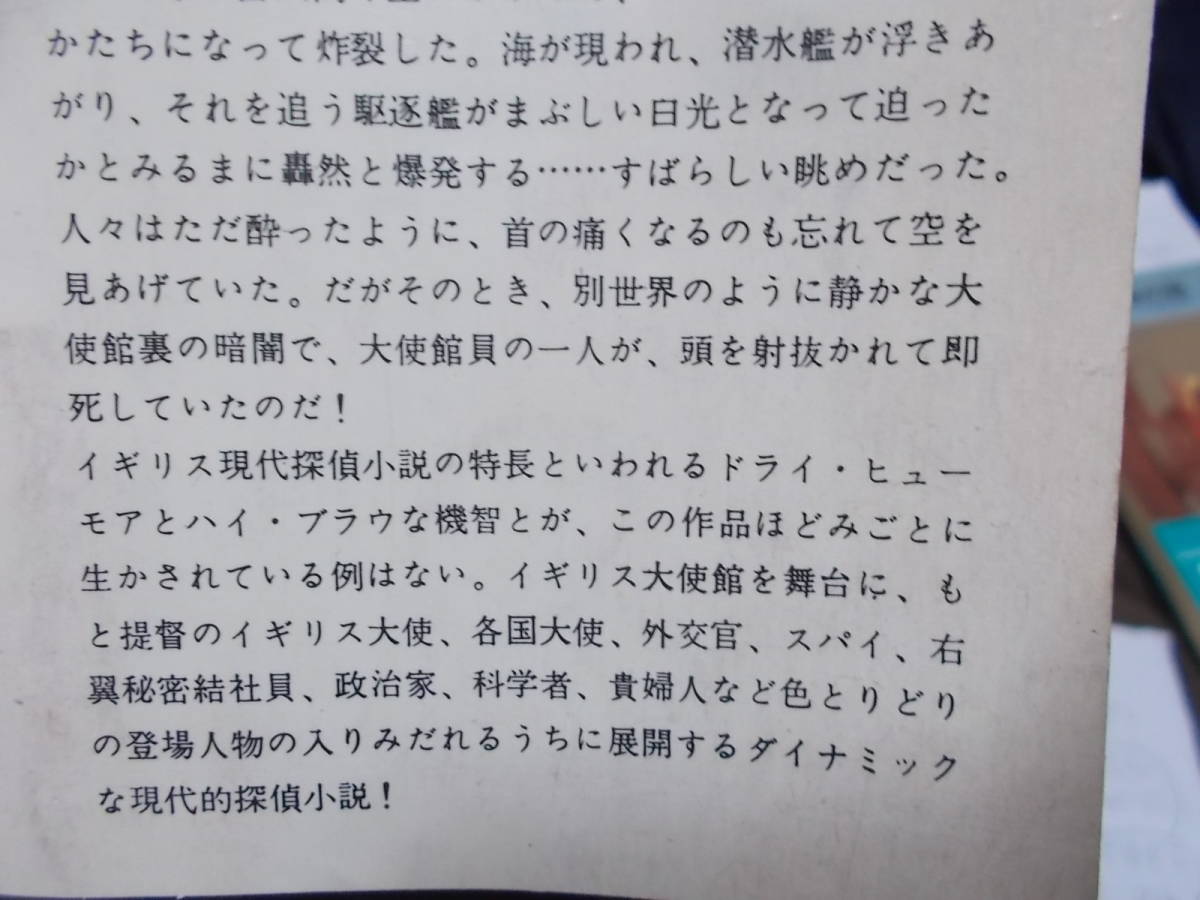 かたちになって炸裂した。海が現われ、潜水艦が浮きあ
がり、それを追う駆逐艦がまぶしい白光となって迫った
かとみるまに轟然と爆発する……すばらしい眺めだった。
人々はただ酔ったように、首の痛くなるのも忘れて空を
見あげていた。だがそのとき、別世界のように静かな大
使館裏の暗闇で、大使館員の一人が、頭を射抜かれて即
死していたのだ！
イギリス現代探偵小説の特長といわれるドライ・ヒュー
モアとハイ・ブラウな機智とが、この作品ほどみごとに
生かされている例はない。イギリス大使館を舞台に、も
と提督のイギリス大使、各国大使、外交官、スパイ、右
翼秘密結社員、政治家、科学者、貴婦人など色とりどり
の登場人物の入りみだれるうちに展開するダイナミック
な現代的探偵小説！